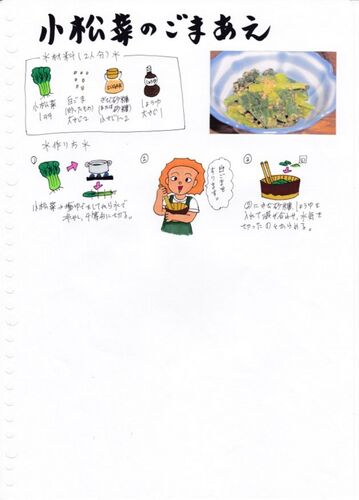 小松菜のごまあえ
＊材料（2人分）＊
小松菜
1わ
白ごま
（炒ったもの）
大さじ2
SUGAR
きび砂糖
（または砂糖）
小さじ1〜2
しょうゆ
大さじ1
＊作り方＊
①
小松菜を塩ゆでして冷水で
冷やし、千等分に切る。
②
白ごまを
すります。
③
②にきび砂糖、しょうゆを
入れて混ぜ合わせ、水気を
切った①をあえる。